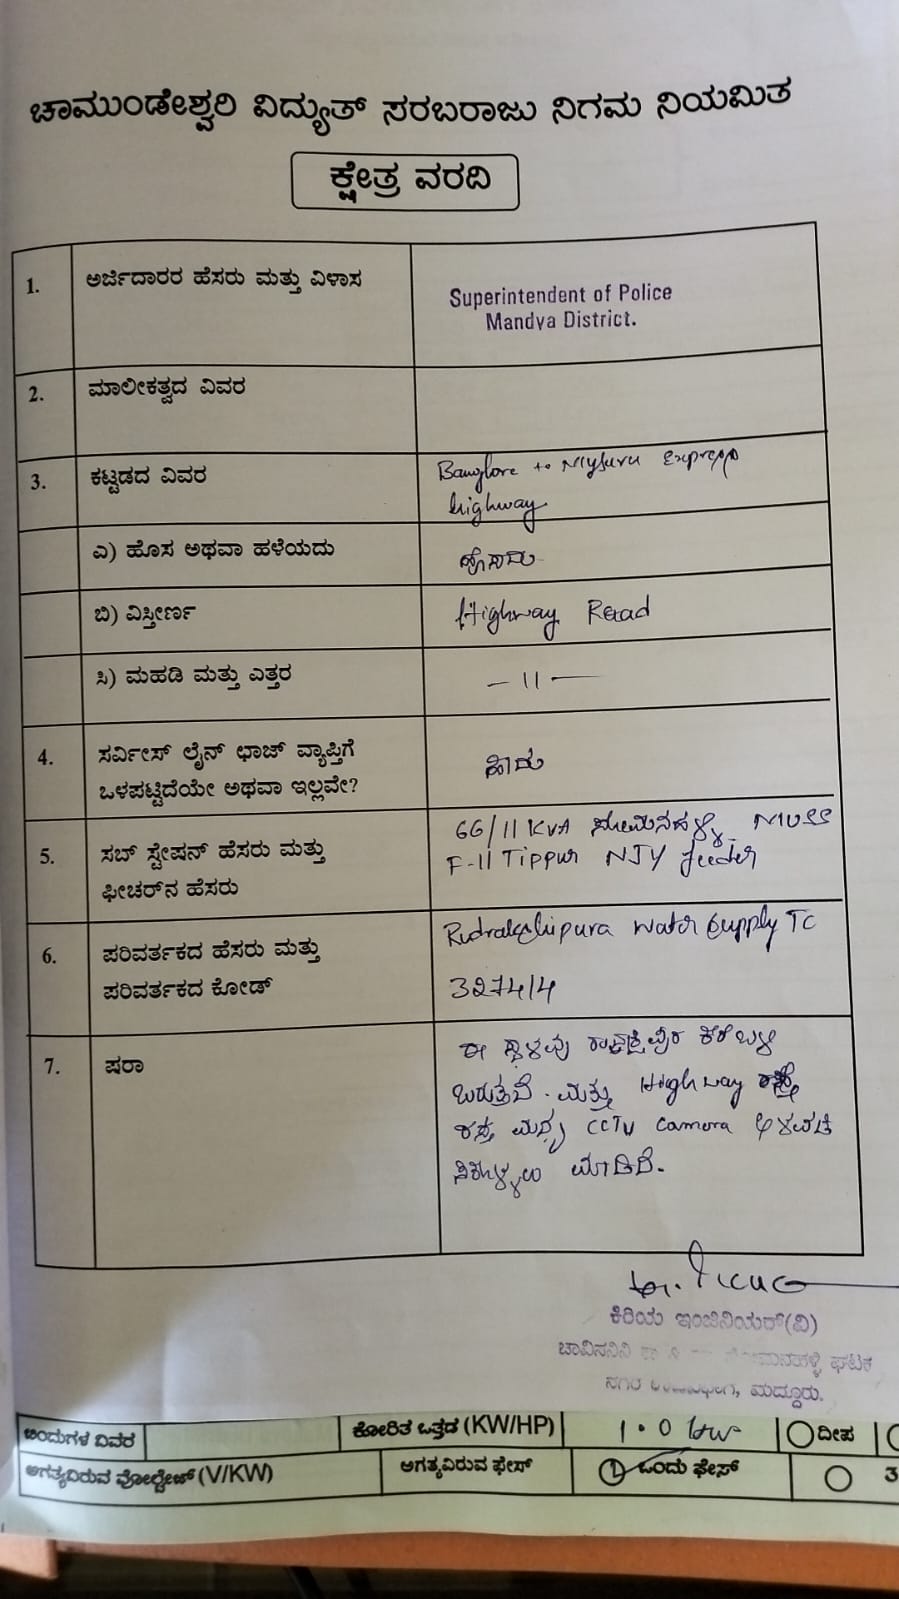 ಚಾಮುಂಡೇಶ್ವರಿ ವಿದ್ಯುತ್ ಸರಬರಾಜು ನಿಗಮ ನಿಯಮಿತ
ಕ್ಷೇತ್ರ ವರದಿ
1. ಅರ್ಜಿದಾರರ ಹೆಸರು ಮತ್ತು ವಿಳಾಸ
Superintendent of Police
Mandya District.
2. ಮಾಲೀಕತ್ವದ ವಿವರ
3. ಕಟ್ಟಡದ ವಿವರ
Banglore to Mysuru Express
highway
ಎ) ಹೊಸ ಅಥವಾ ಹಳೆಯದು
ಹೊಸದು
ಬಿ) ವಿಸ್ತೀರ್ಣ
Highway Road
ಸಿ) ಮಹಡಿ ಮತ್ತು ಎತ್ತರ
— 11 —
4. ಸರ್ವೀಸ್ ಲೈನ್ ಛಾಜ್ ವ್ಯಾಪ್ತಿಗೆ
ಒಳಪಟ್ಟಿದೆಯೇ ಅಥವಾ ಇಲ್ಲವೇ?
ಹೌದು
5. ಸಬ್ ಸ್ಟೇಷನ್ ಹೆಸರು ಮತ್ತು
ಫೀಚರ್‌ನ ಹೆಸರು
66/11 KVA ಸೋಮನಹಳ್ಳಿ MUSS
F-11 Tippur NJY feeder
6. ಪರಿವರ್ತಕದ ಹೆಸರು ಮತ್ತು
ಪರಿವರ್ತಕದ ಕೋಡ್
Rudrakshipura water supply TC
327414
7. ಷರಾ
ಈ ಸ್ಥಳವು ರುದ್ರಾಕ್ಷಿಪುರ ಕೆರೆ ಬಳಿ
ಬರುತ್ತದೆ. ಮತ್ತು Highway ರಸ್ತೆ
ಮಧ್ಯ CCTV camera ಅಳವಡಿ
ಮಾಡಿದೆ.
ಕಿರಿಯ ಇಂಜಿನಿಯರ್(ವಿ)
ಚಾವಿಸನಿನಿ ಸೋಮನಹಳ್ಳಿ ಘಟಕ
ನಗರ ಉಪವಿಭಾಗ, ಮದ್ದೂರು.
ಬಿಂದುಗಳ ವಿವರ
ಕೋರಿತ ಒತ್ತಡ (KW/HP)
1.0 kw
ದೀಪ
ಅಗತ್ಯವಿರುವ ವೋಲ್ಟೇಜ್ (V/KW)
ಅಗತ್ಯವಿರುವ ಫೇಸ್
1 ಒಂದು ಫೇಸ್
3